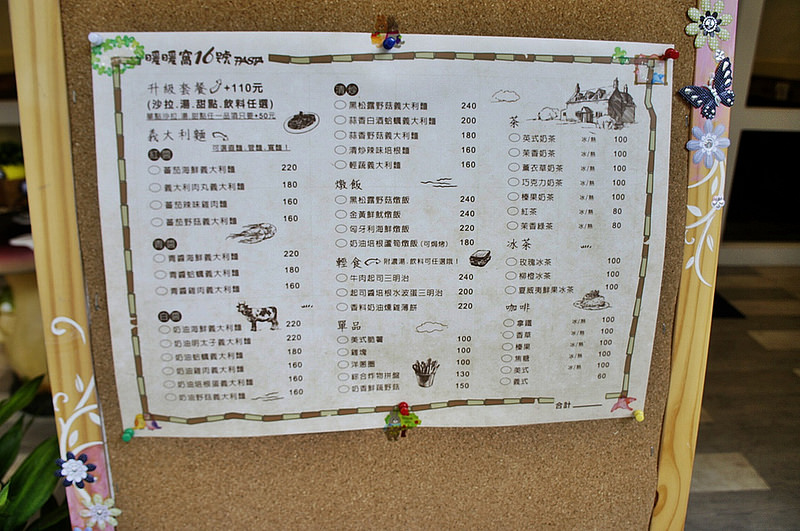 暖暖窩16號 PASTA
升級套餐 +110元
(沙拉.湯.甜點.飲料任選)
單點沙拉.湯.甜點任一品項只要+50元
義大利麵
可選直麵.管麵.寬麵!
紅醬
番茄海鮮義大利麵 220
義大利肉丸義大利麵 180
番茄辣味雞肉麵 160
番茄野菇義大利麵 160
青醬
青醬海鮮義大利麵 220
青醬蛤蠣義大利麵 180
青醬雞肉義大利麵 160
白醬
奶油海鮮義大利麵 220
奶油明太子義大利麵 220
奶油蛤蠣義大利麵 180
奶油雞肉義大利麵 160
奶油培根蛋義大利麵 160
奶油野菇義大利麵 160
清炒
黑松露野菇義大利麵 240
蒜香白酒蛤蠣義大利麵 200
蒜香野菇義大利麵 180
清炒辣味培根麵 160
輕蔬義大利麵 160
燉飯
黑松露野菇燉飯 240
金黃鮮魷燉飯 240
匈牙利海鮮燉飯 220
奶油培根蘆筍燉飯(可焗烤) 180
輕食
附濃湯.飲料可任選哦!
牛肉起司三明治 240
起司醬培根水波蛋三明治 200
香料奶油燻雞薄餅 220
單品
美式脆薯 100
雞塊 100
洋蔥圈 100
綜合炸物拼盤 130
奶香鮮蔬野菇 150
茶
英式奶茶 冰/熱 100
茉香奶茶 冰/熱 100
薰衣草奶茶 冰/熱 100
巧克力奶茶 冰/熱 100
榛果奶茶 冰/熱 100
紅茶 冰/熱 80
茉香綠茶 冰/熱 80
冰茶
玫瑰冰茶 100
柳橙冰茶 100
夏威夷鮮果冰茶 100
咖啡
拿鐵 冰/熱 100
香草 冰/熱 100
榛果 冰/熱 100
焦糖 冰/熱 100
美式 冰/熱 100
義式 60
合計